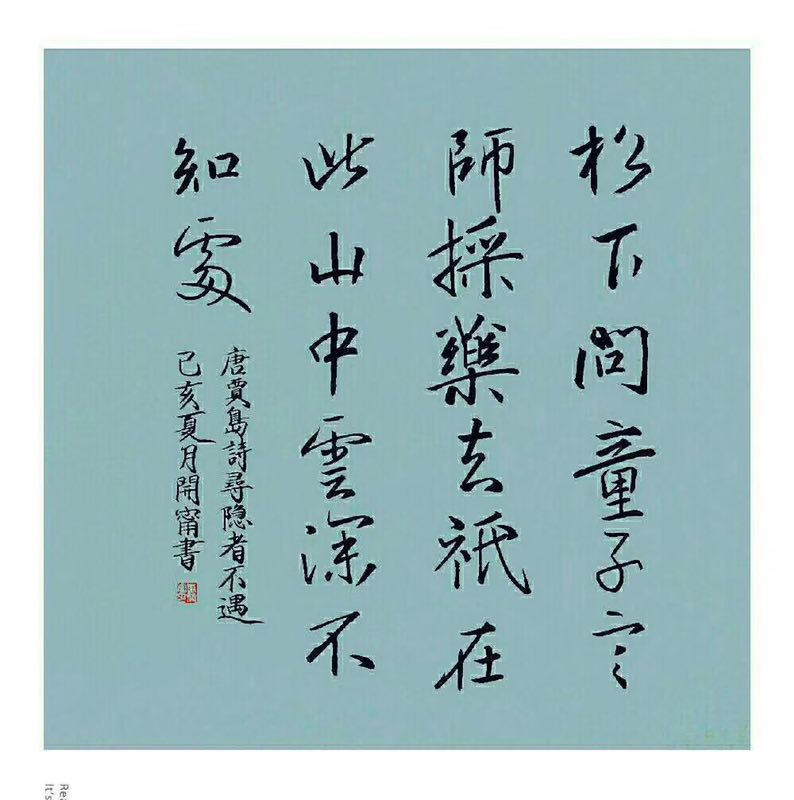 松下問童子言
師採藥去祇在
此山中雲深不
知處
唐賈島詩尋隐者不遇
己亥夏月開甯書
It's